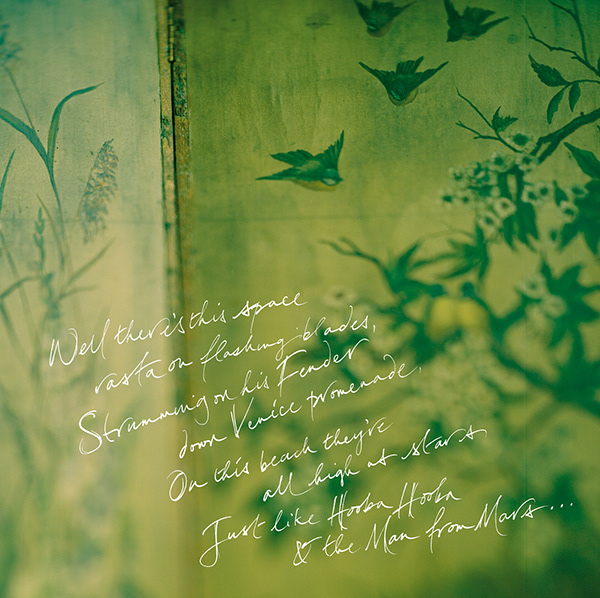 Well there's this space
rasta on flashing blades,
Strumming on his Fender
down Venice promenade.
On this beach they're
all high as stars
Just like Hooba Hooba
& the Man from Mars...